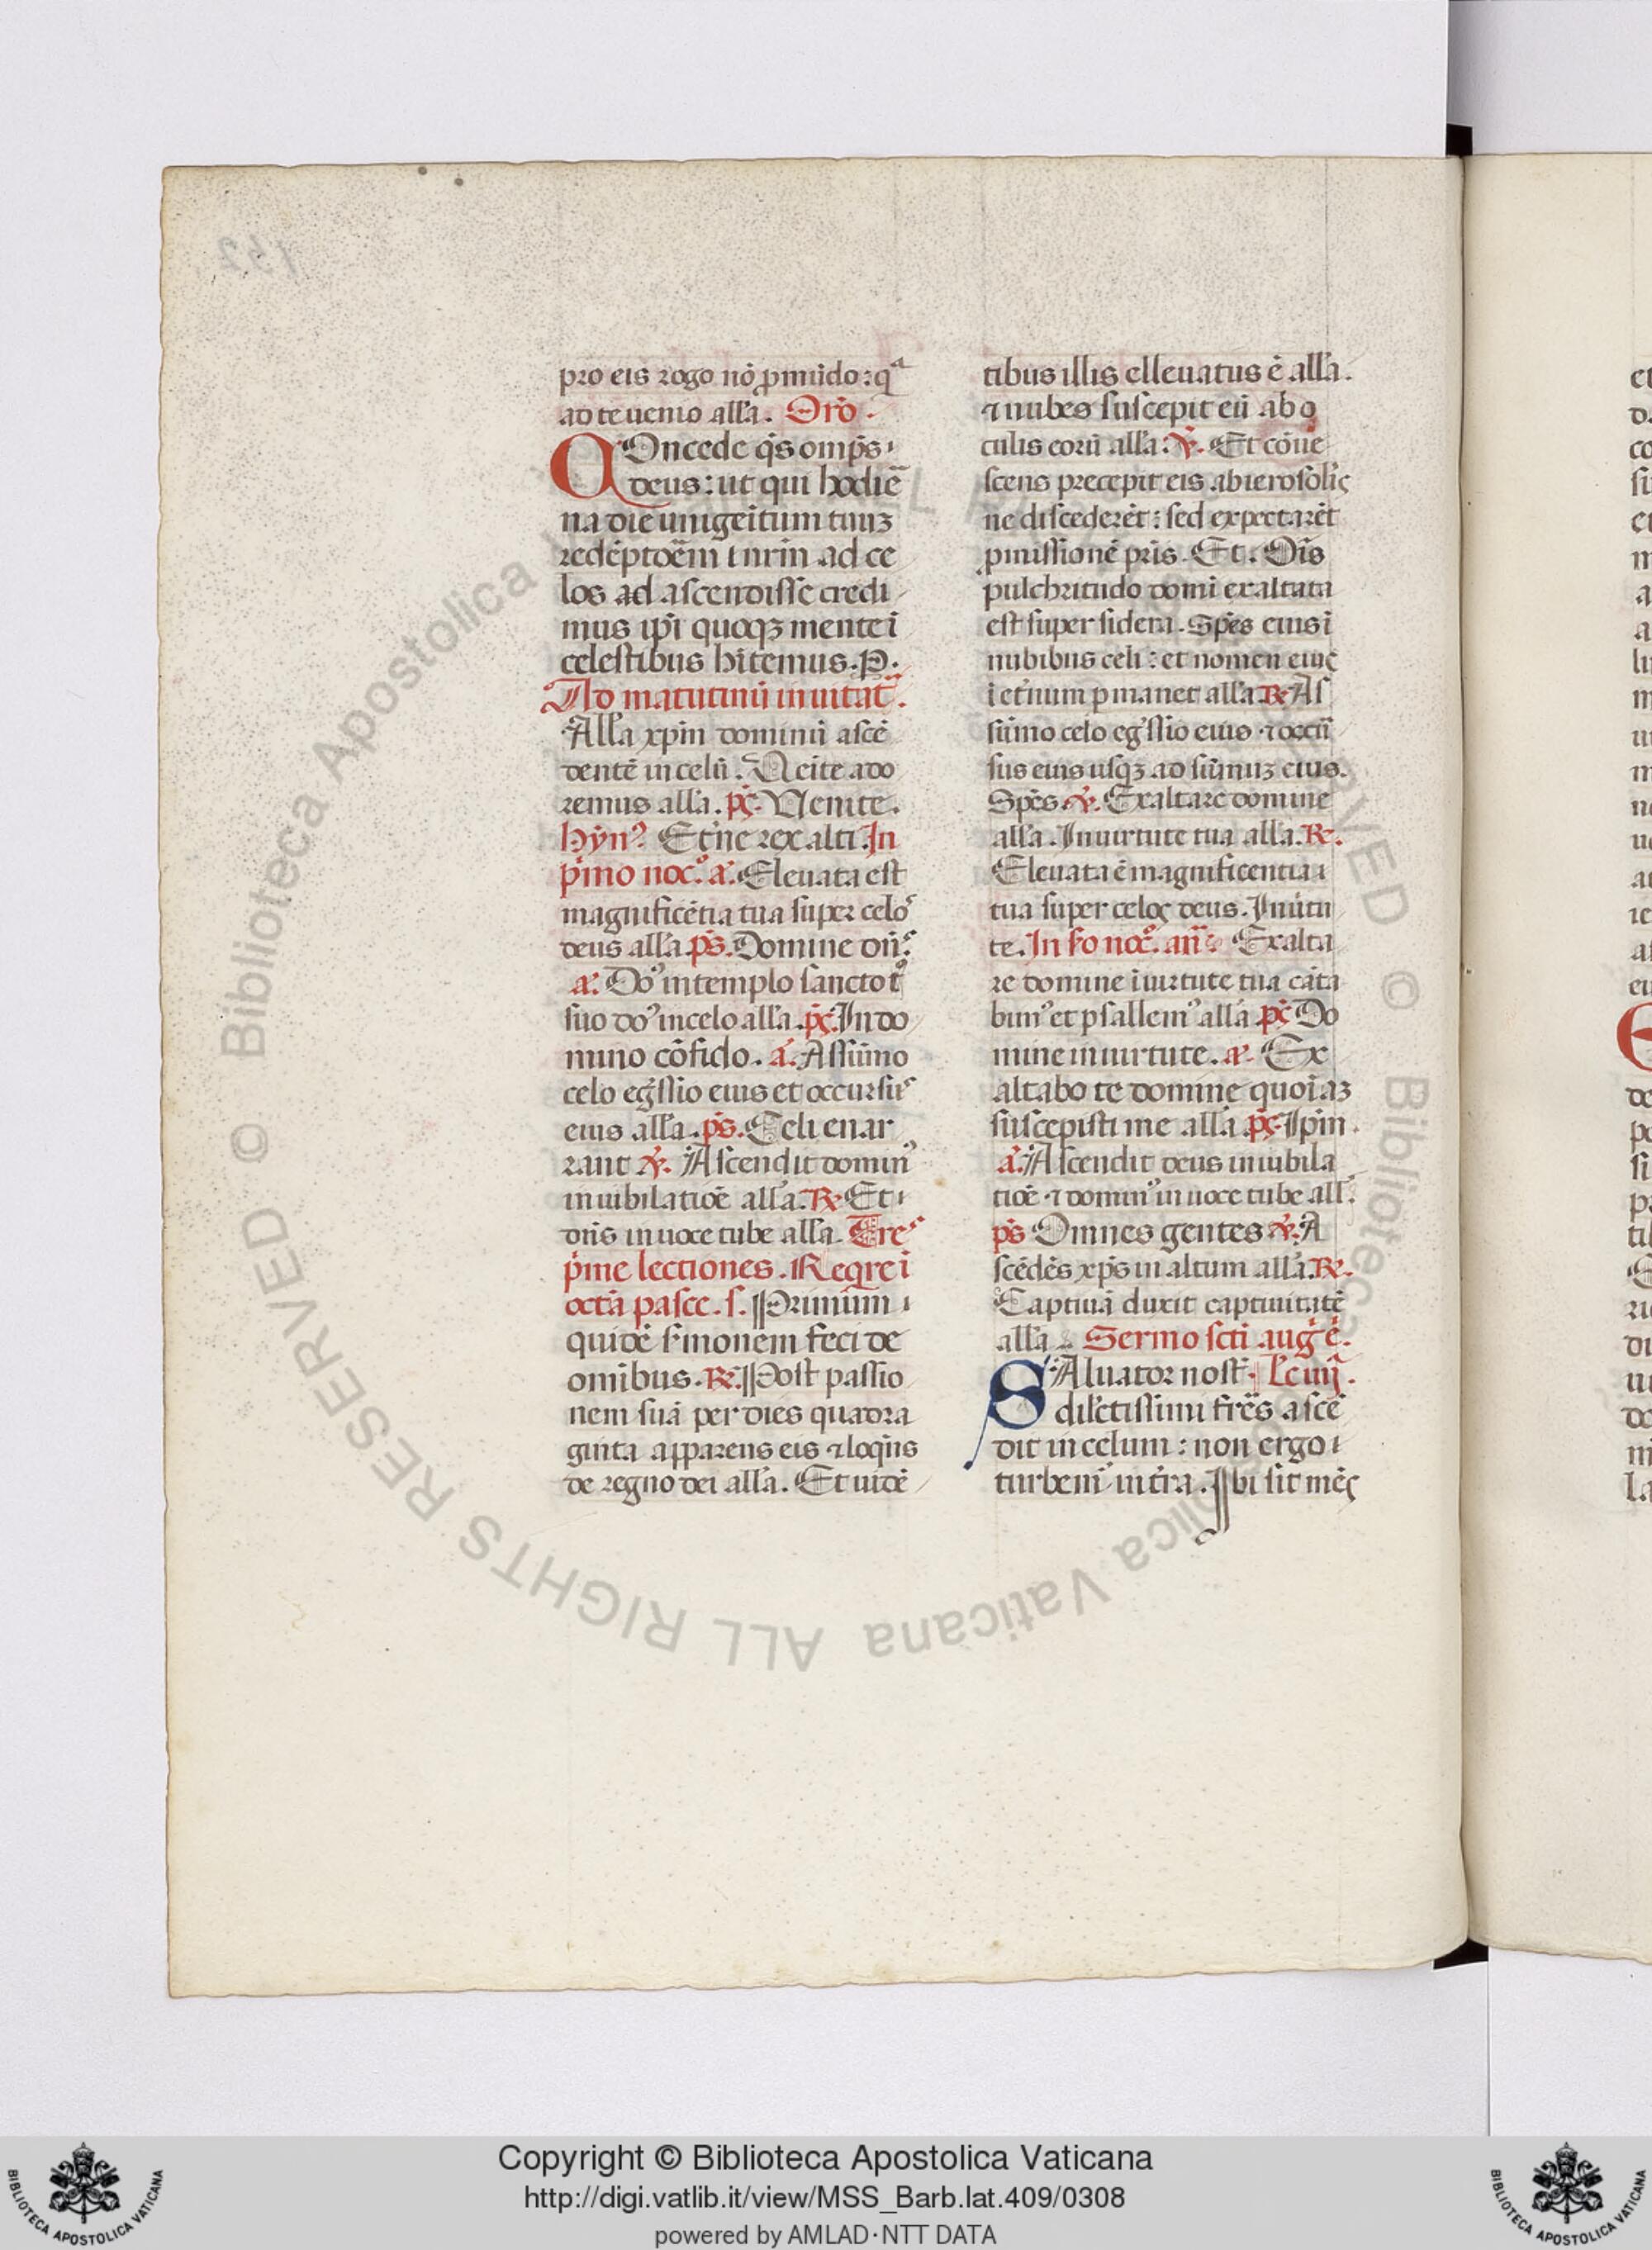 pro eis rogo nō ꝓ mūdo: qᵃ
ad te uenio all'a. Orō.
QOncede q̄s omp̄s
deus: ut qui hodiē
na die unigeītum tuuꝫ
redēptoēm n̄rm̄ ad ce
los ad ascendisse credi
mus ip̄i quoqꝫ mente ī
celestibus hītemus. P.
Ad matutinū inuitat̄.
All'a xp̄m dominū ascē
dentē in celū. Ueite ado
remus all'a. pş. Uenite.
Hȳn᾽ Et̄ne rex alti. In
p̄mo noc᾽. a᾽. Eleuata est
magnificētia tua super celo᾽
deus all'a. ps̄. Domine dn̄᾽
a᾽. Do᾽ in templo sancto
suo do᾽ in celo all'a. pş. In do
mino cōfido. a᾽. A summo
celo eḡssio eius et occursu᾽
eius all'a. ps̄. Celi enar
rant ℣. Ascendit domin᾽
in iubilatiōe all'a. ℞. Et
dn̄s in uoce tube all'a. Tre᾽
p̄me lectiones. Reqre ī
octā pasce. s. Primum
quidē s'monem feci de
omībus. ℞. Post passio
nem suā per dies quadra
ginta apparens eis ⁊ loqn̄s
de regno dei all'a. Et uidē
tibus illis elleuatus ē all'a.
⁊ nubes suscepit eū ab o
culis eorū all'a: ℣. Et cōue
scens precepit eis ab ierosolīş
ne discederēt: sed expectarēt
ꝓmissionē pr̄is. Et. Oīs
pulchritudo domi exaltata
est super sidera. Spēs eius ī
nubibus celi: et nomen eiuş
ī et̄num ꝑmanet all'a ℞. A s
ūmo celo eḡssio eius ⁊ occū
sus eius usqꝫ ad sūmuꝫ eius.
Spēs. ℣. Exaltare domine
all'a. In uirtute tua all'a. ℞.
Eleuata ē magnificentia
tua super celoş deus. In uirtu
te. In s'o noc᾽. an̄᾽ Exalta
re domine ī uirtute tua cāta
bim᾽ et psallem᾽ all'a pş Do
mine in uirtute. a᾽. Ex
altabo te domine quoīaꝫ
suscepisti me all'a pş. Ipm̄.
a᾽. Ascendit deus in iubila
tiōe ⁊ domin᾽ in uoce tube all'.
ps̄ Omnes gentes ℣. A
scēdēs xp̄s in altum all'a. ℞.
Captiuā duxit captiuitatē
all'a. Sermo scti aug᾽ ē.
SAluator nost̄. Lc̄ iiij.
dil'ctissimi fr̄es ascē
dit in celum: non ergo
turbem᾽ in t̄ra. Ibi sit mēş
Copyright © Biblioteca Apostolica Vaticana
http://digi.vatlib.it/view/MSS_Barb.lat.409/0308
powered by AMLAD·NTT DATA
BIBLIOTECA APOSTOLICA VATICANA
BIBLIOTECA APOSTOLICA VATICANA